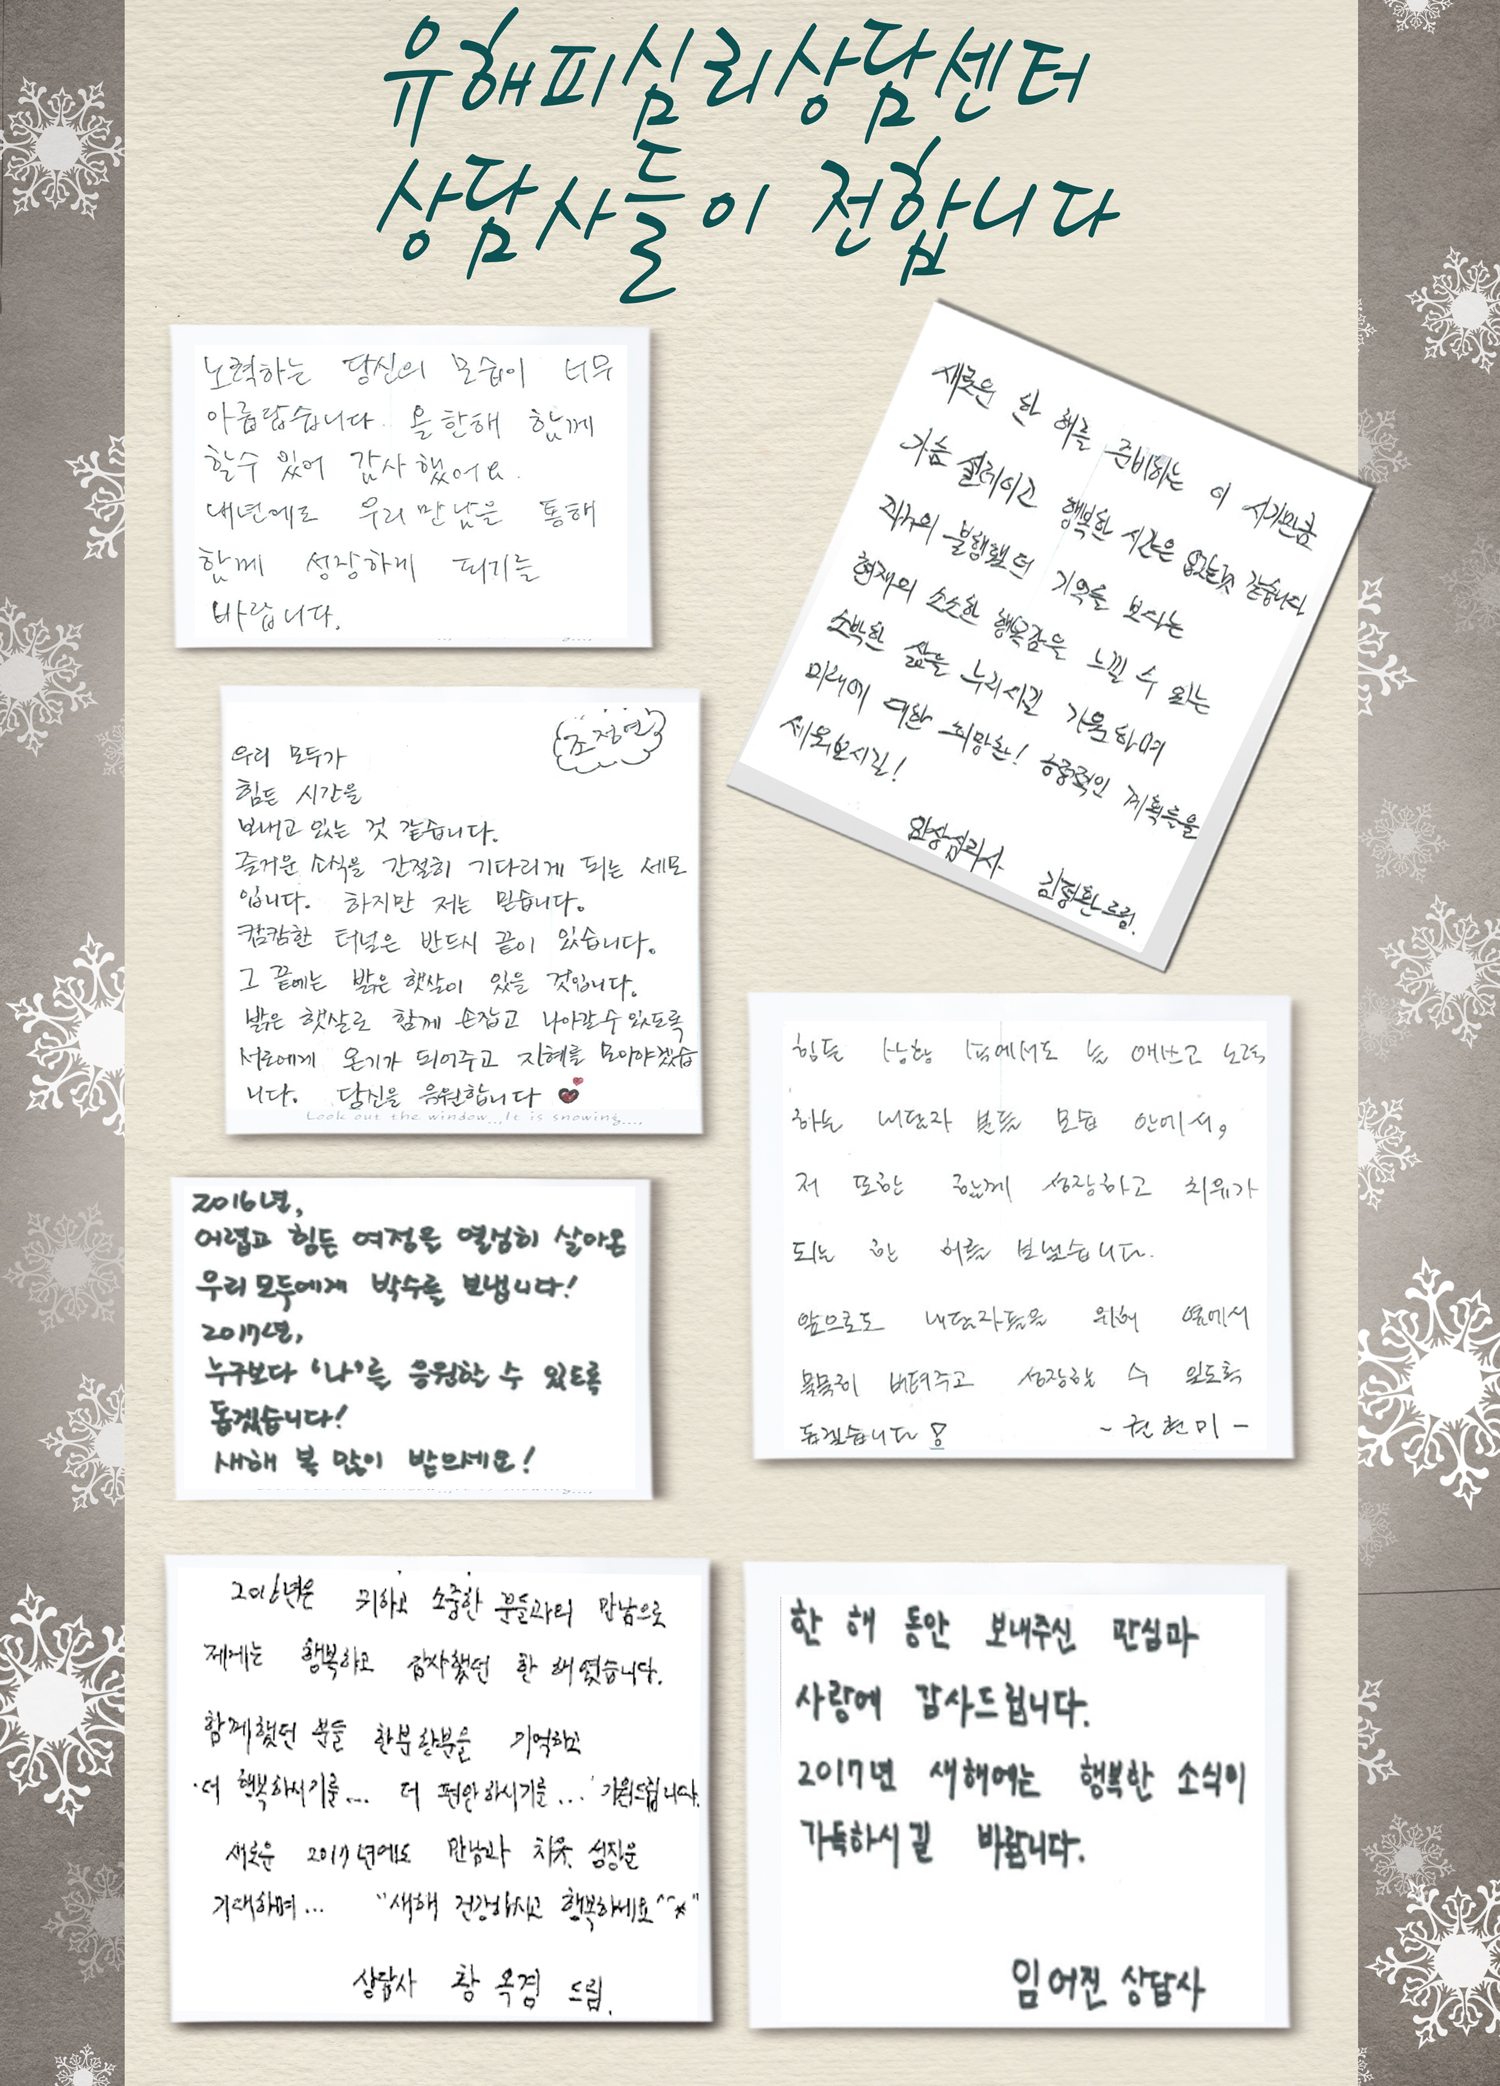 유해피심리상담센터
상담사들이 전합니다
노력하는 당신의 모습이 너무
아름답습니다. 올한해 함께
할수 있어 감사했어요.
내년에도 우리만남을 통해
함께 성장하게 되기를
바랍니다.
새로운 한 해를 준비하는 이 시기만큼
가슴 설레이고 행복한 시간은 없는것 같습니다
과거의 불행했던 기억을 보다는
현재의 소소한 행복감을 느낄 수 있는
소박한 삶을 누리시길 기원하며
미래에 대한 희망찬! 계획들을
세워보시길!
임상심리사 김정환드림.
조정연
우리 모두가
힘든 시간을
보내고 있는 것 같습니다.
즐거운 소식을 간절히 기다리게 되는 세모
입니다. 하지만 저는 믿습니다.
캄캄한 터널은 반드시 끝이 있습니다.
그 끝에는 밝은 햇살이 있을 것입니다.
밝은 햇살로 함께 손잡고 나아갈수있도록
서로에게 온기가 되어주고 지혜를 모아야겠습
니다. 당신을 응원합니다
Look out the window..,It is snowing....,
힘든 상황 속에서도 늘 애쓰고 노력
하는 내담자 분들 모습 안에서,
저 또한 함께 성장하고 치유가
되는 한 해를 보냈습니다.
앞으로도 내담자들을 위해 옆에서
묵묵히 버텨주고 성장할 수 있도록
돕겠습니다!
~ 권현미 -
2016년,
어렵고 힘든 여정을 열심히 살아온
우리모두에게 박수를 보냅니다!
2017년,
누구보다 '나'를 응원할 수 있도록
돕겠습니다!
새해 복 많이 받으세요!
2016년은 귀하고 소중한 분들과의 만남으로
제게는 행복하고 감사했던 한 해였습니다.
함께했던 분들 한분한분을 기억하고
더 행복하시기를... 더 편안하시기를... 기원드립니다.
새로운 2017년에도 만남과 치유, 성장을
기대하며... "새해 건강하시고 행복하세요^^*"
상담사 황옥경 드림.
한 해 동안 보내주신 관심과
사랑에 감사드립니다.
2017년 새해에는 행복한 소식이
가득하시길 바랍니다.
임어진 상담사